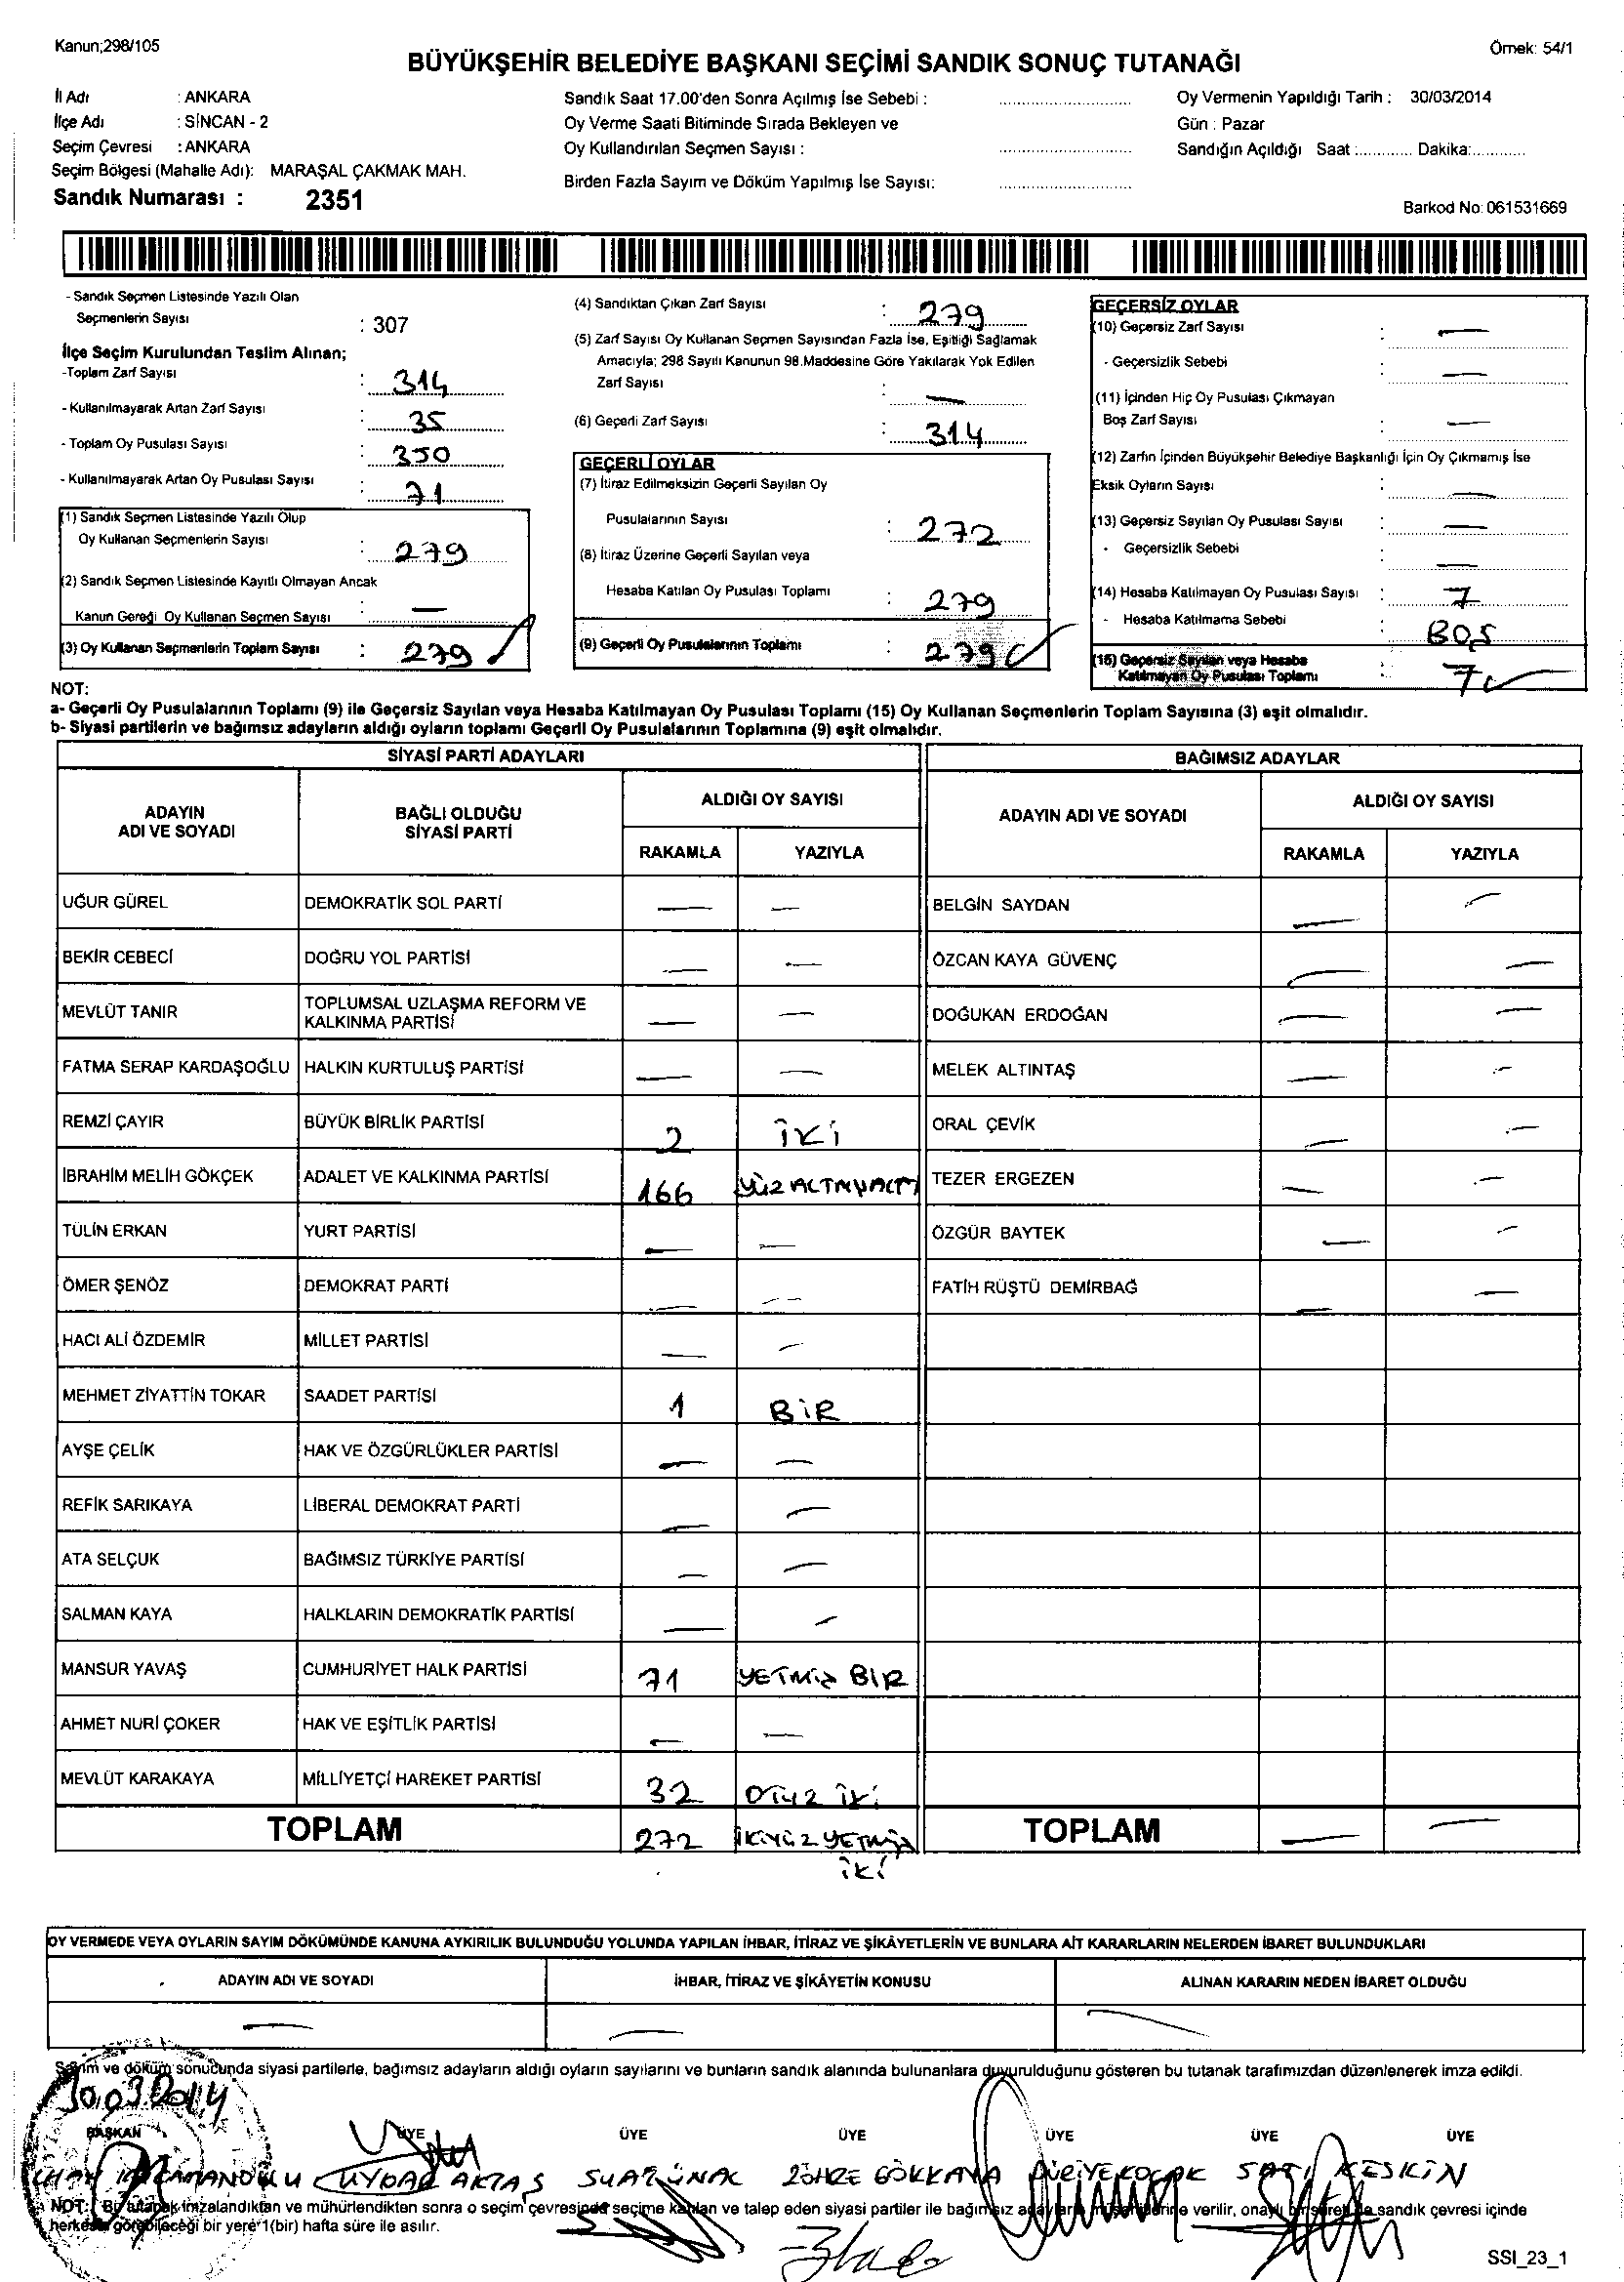 Kanun;298/105
Örnek: 54/1
BÜYÜKŞEHİR BELEDİYE BAŞKANI SEÇİMİ SANDIK SONUÇ TUTANAĞI
İl Adı : ANKARA
İlçe Adı : SİNCAN - 2
Seçim Çevresi : ANKARA
Seçim Bölgesi (Mahalle Adı): MARAŞAL ÇAKMAK MAH.
Sandık Numarası : 2351
Sandık Saat 17.00'den Sonra Açılmış İse Sebebi :
Oy Verme Saati Bitiminde Sırada Bekleyen ve
Oy Kullandırılan Seçmen Sayısı :
Birden Fazla Sayım ve Döküm Yapılmış İse Sayısı:
Oy Vermenin Yapıldığı Tarih : 30/03/2014
Gün : Pazar
Sandığın Açıldığı Saat :............ Dakika:............
Barkod No: 061531669
- Sandık Seçmen Listesinde Yazılı Olan
Seçmenlerin Sayısı : 307
İlçe Seçim Kurulundan Teslim Alınan;
-Toplam Zarf Sayısı : 314
- Kullanılmayarak Artan Zarf Sayısı : 35
- Toplam Oy Pusulası Sayısı : 350
- Kullanılmayarak Artan Oy Pusulası Sayısı : 71
(1) Sandık Seçmen Listesinde Yazılı Olup
Oy Kullanan Seçmenlerin Sayısı : 279
(2) Sandık Seçmen Listesinde Kayıtlı Olmayan Ancak
Kanun Gereği Oy Kullanan Seçmen Sayısı : —
(3) Oy Kullanan Seçmenlerin Toplam Sayısı : 279
(4) Sandıktan Çıkan Zarf Sayısı : 279
(5) Zarf Sayısı Oy Kullanan Seçmen Sayısından Fazla İse, Eşitliği Sağlamak
Amacıyla; 298 Sayılı Kanunun 98.Maddesine Göre Yakılarak Yok Edilen
Zarf Sayısı : —
(6) Geçerli Zarf Sayısı : 314
GEÇERLİ OYLAR
(7) İtiraz Edilmeksizin Geçerli Sayılan Oy
Pusulalarının Sayısı : 272
(8) İtiraz Üzerine Geçerli Sayılan veya
Hesaba Katılan Oy Pusulası Toplamı : 279
(9) Geçerli Oy Pusulalarının Toplamı : 279
GEÇERSİZ OYLAR
(10) Geçersiz Zarf Sayısı : —
- Geçersizlik Sebebi : —
(11) İçinden Hiç Oy Pusulası Çıkmayan
Boş Zarf Sayısı : —
(12) Zarfın İçinden Büyükşehir Belediye Başkanlığı İçin Oy Çıkmamış İse
Eksik Oyların Sayısı : —
(13) Geçersiz Sayılan Oy Pusulası Sayısı : —
- Geçersizlik Sebebi : —
(14) Hesaba Katılmayan Oy Pusulası Sayısı : 7
- Hesaba Katılmama Sebebi : BOŞ
(15) Geçersiz Sayılan veya Hesaba
Katılmayan Oy Pusulası Toplamı : 7
NOT:
a- Geçerli Oy Pusulalarının Toplamı (9) ile Geçersiz Sayılan veya Hesaba Katılmayan Oy Pusulası Toplamı (15) Oy Kullanan Seçmenlerin Toplam Sayısına (3) eşit olmalıdır.
b- Siyasi partilerin ve bağımsız adayların aldığı oyların toplamı Geçerli Oy Pusulalarının Toplamına (9) eşit olmalıdır.
SİYASİ PARTİ ADAYLARI
ADAYIN ADI VE SOYADI | BAĞLI OLDUĞU SİYASİ PARTİ | ALDIĞI OY SAYISI
RAKAMLA | YAZIYLA
UĞUR GÜREL | DEMOKRATİK SOL PARTİ | — | —
BEKİR CEBECİ | DOĞRU YOL PARTİSİ | — | —
MEVLÜT TANIR | TOPLUMSAL UZLAŞMA REFORM VE KALKINMA PARTİSİ | — | —
FATMA SERAP KARDAŞOĞLU | HALKIN KURTULUŞ PARTİSİ | — | —
REMZİ ÇAYIR | BÜYÜK BİRLİK PARTİSİ | 2 | İKİ
İBRAHİM MELİH GÖKÇEK | ADALET VE KALKINMA PARTİSİ | 166 | YÜZ ALTMIŞALTI
TÜLİN ERKAN | YURT PARTİSİ | — | —
ÖMER ŞENÖZ | DEMOKRAT PARTİ | — | —
HACI ALİ ÖZDEMİR | MİLLET PARTİSİ | — | —
MEHMET ZİYATTİN TOKAR | SAADET PARTİSİ | 1 | BİR
AYŞE ÇELİK | HAK VE ÖZGÜRLÜKLER PARTİSİ | — | —
REFİK SARIKAYA | LİBERAL DEMOKRAT PARTİ | — | —
ATA SELÇUK | BAĞIMSIZ TÜRKİYE PARTİSİ | — | —
SALMAN KAYA | HALKLARIN DEMOKRATİK PARTİSİ | — | —
MANSUR YAVAŞ | CUMHURİYET HALK PARTİSİ | 71 | YETMİŞ BİR
AHMET NURİ ÇOKER | HAK VE EŞİTLİK PARTİSİ | — | —
MEVLÜT KARAKAYA | MİLLİYETÇİ HAREKET PARTİSİ | 32 | OTUZ İKİ
TOPLAM | 272 | İKİYÜZ YETMİŞ İKİ
BAĞIMSIZ ADAYLAR
ADAYIN ADI VE SOYADI | ALDIĞI OY SAYISI
RAKAMLA | YAZIYLA
BELGİN SAYDAN | — | —
ÖZCAN KAYA GÜVENÇ | — | —
DOĞUKAN ERDOĞAN | — | —
MELEK ALTINTAŞ | — | —
ORAL ÇEVİK | — | —
TEZER ERGEZEN | — | —
ÖZGÜR BAYTEK | — | —
FATİH RÜŞTÜ DEMİRBAĞ | — | —
TOPLAM | — | —
OY VERMEDE VEYA OYLARIN SAYIM DÖKÜMÜNDE KANUNA AYKIRILIK BULUNDUĞU YOLUNDA YAPILAN İHBAR, İTİRAZ VE ŞİKÂYETLERİN VE BUNLARA AİT KARARLARIN NELERDEN İBARET BULUNDUKLARI
ADAYIN ADI VE SOYADI | İHBAR, İTİRAZ VE ŞİKÂYETİN KONUSU | ALINAN KARARIN NEDEN İBARET OLDUĞU
— | — | —
Sayım ve döküm sonucunda siyasi partilerle, bağımsız adayların aldığı oyların sayılarını ve bunların sandık alanında bulunanlara duyurulduğunu gösteren bu tutanak tarafımızdan düzenlenerek imza edildi.
30.03.2014
BAŞKAN ÜYE ÜYE ÜYE ÜYE ÜYE ÜYE
UYGAR AKTAŞ SUAT ÜNAL ZÖHRE GÖKKAYA DURİYE KOÇAK SATI KESKİN
NOT: Bu tutanak imzalandıktan ve mühürlendikten sonra o seçim çevresinde seçime katılan ve talep eden siyasi partiler ile bağımsız adayların müşahitlerine verilir, onaylı bir sureti de sandık çevresi içinde
herkesin görebileceği bir yere 1(bir) hafta süre ile asılır.
SSI_23_1